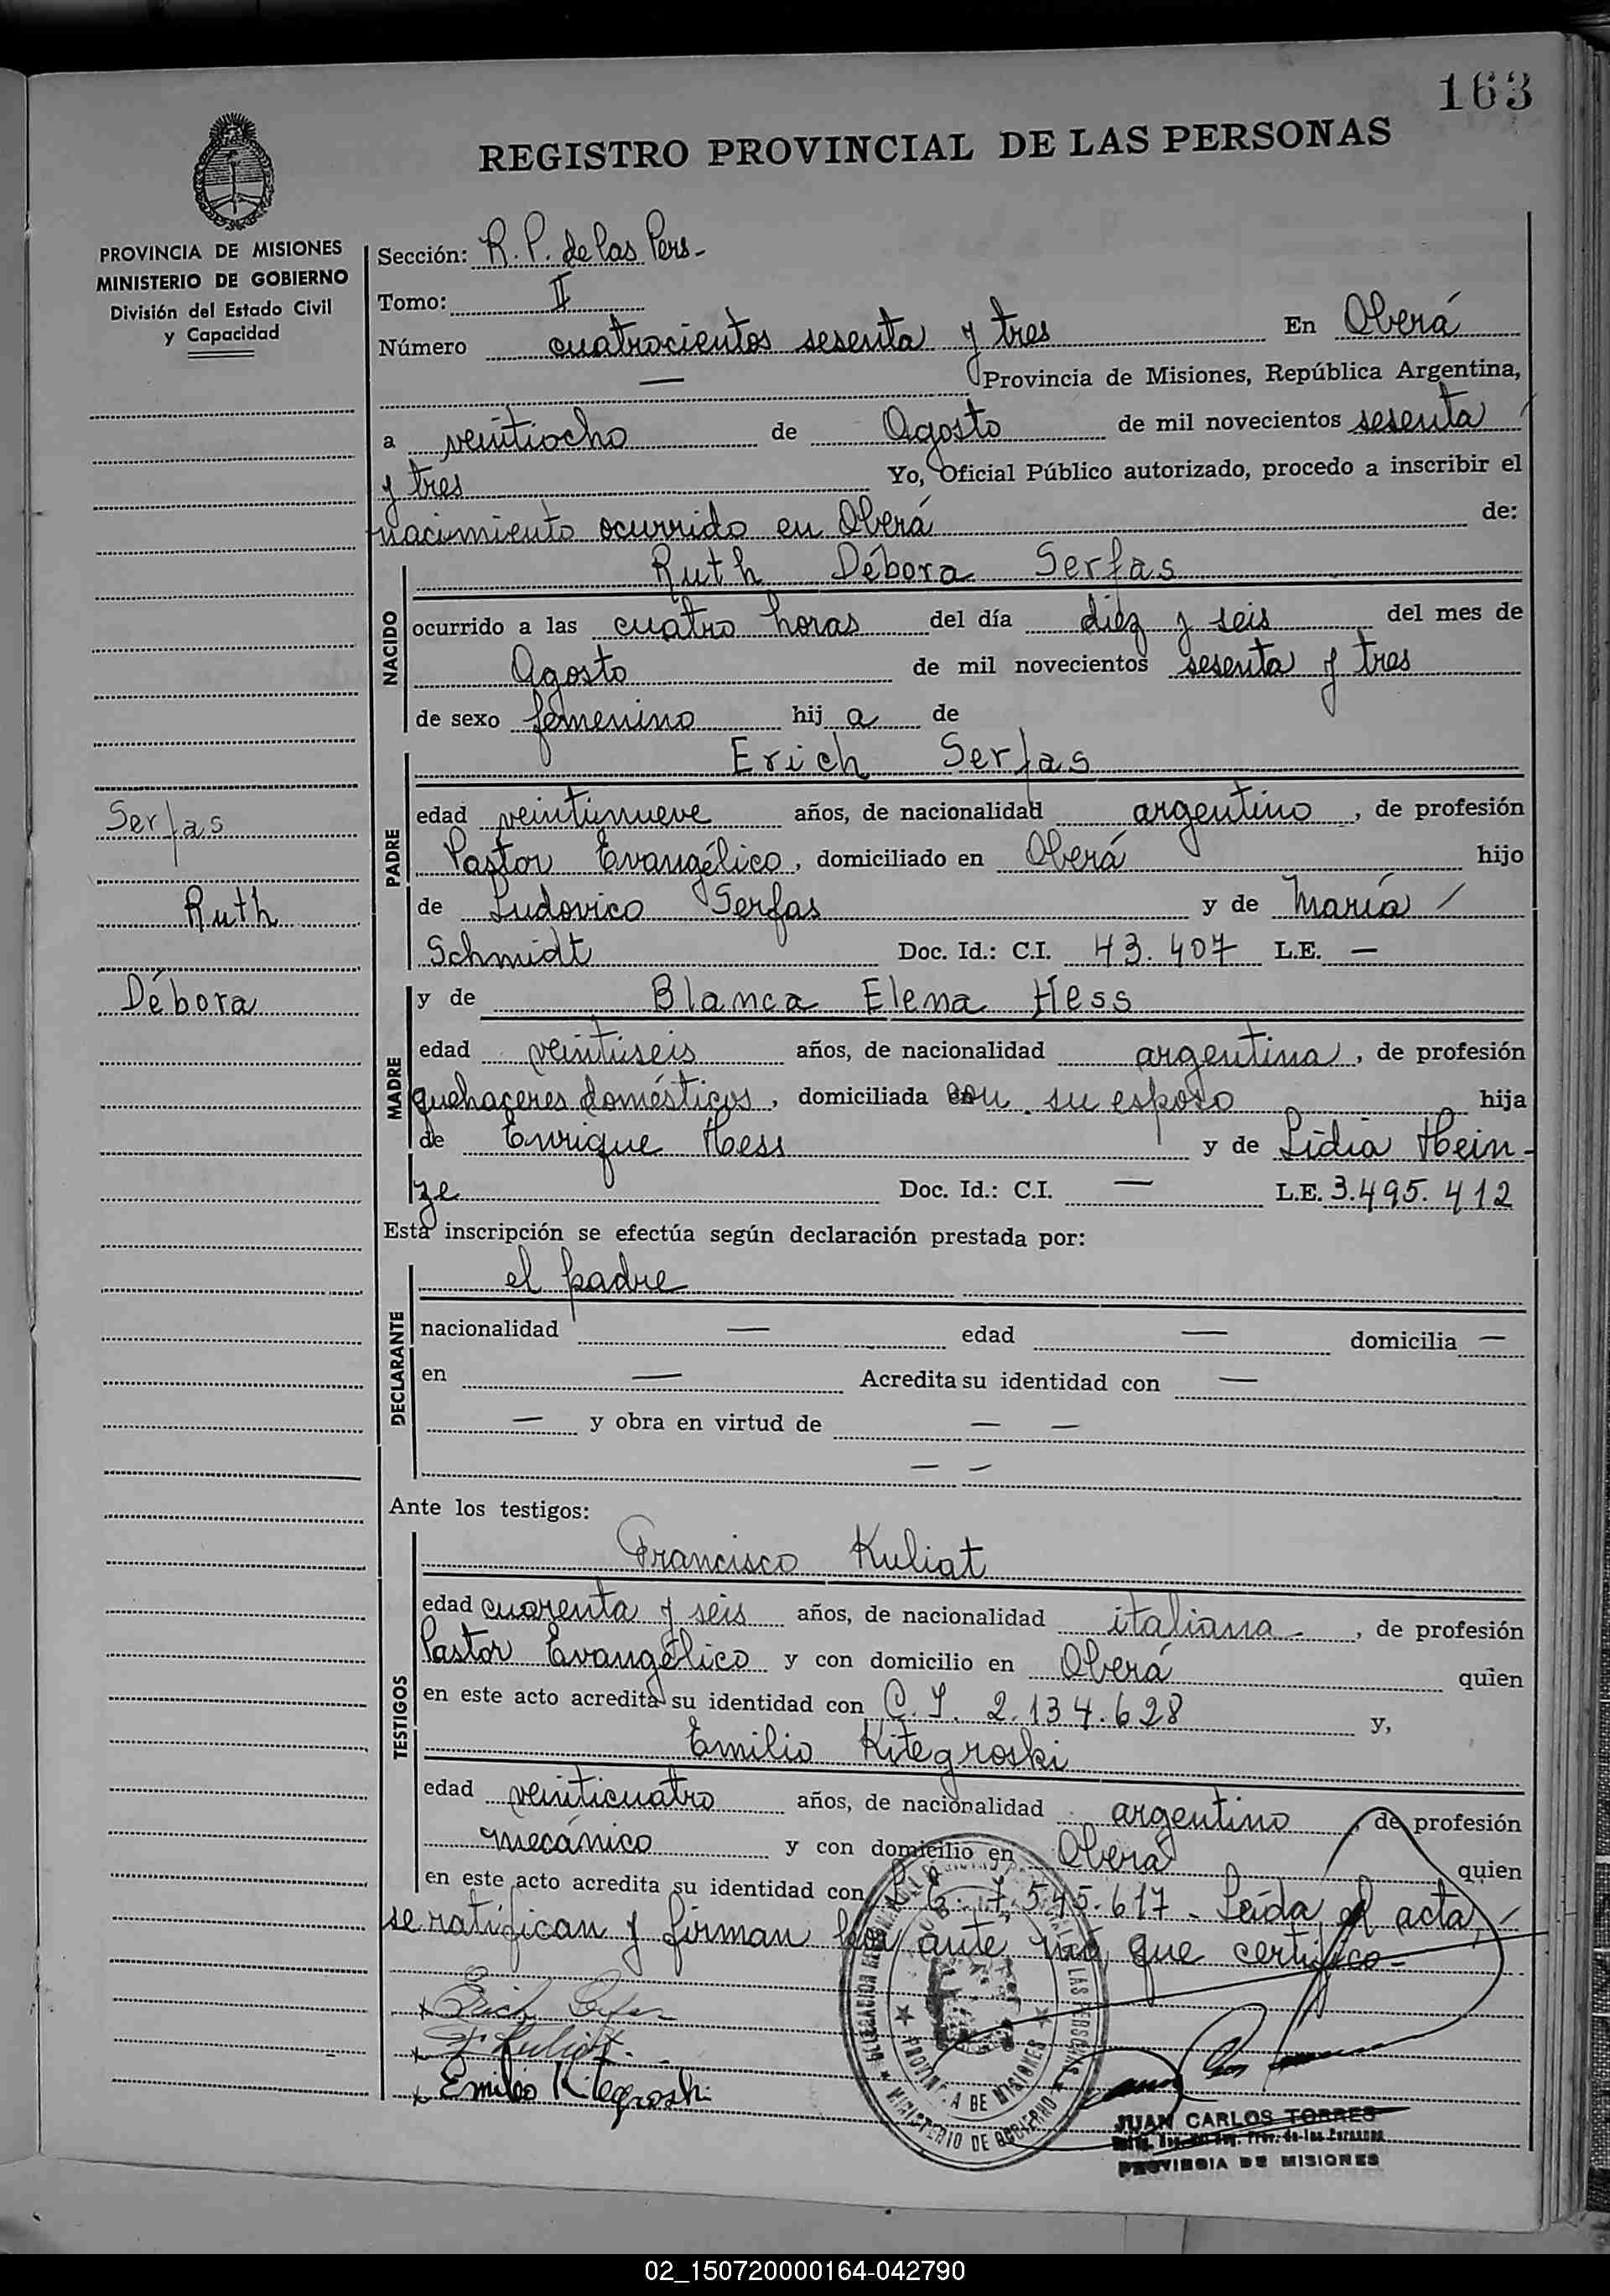 163
REGISTRO PROVINCIAL DE LAS PERSONAS
PROVINCIA DE MISIONES
MINISTERIO DE GOBIERNO
División del Estado Civil
y Capacidad
Serfas
Ruth
Débora
Sección: R. P. de las Pers-
Tomo: II
Número cuatrocientos sesenta y tres En Oberá
— Provincia de Misiones, República Argentina,
a veintiocho de Agosto de mil novecientos sesenta
y tres Yo, Oficial Público autorizado, procedo a inscribir el
nacimiento ocurrido en Oberá de:
NACIDO
Ruth Débora Serfas
ocurrido a las cuatro horas del día diez y seis del mes de
Agosto de mil novecientos sesenta y tres
de sexo femenino hij a de
PADRE
Erich Serfas
edad veintinueve años, de nacionalidad argentino, de profesión
Pastor Evangélico, domiciliado en Oberá hijo
de Ludovico Serfas y de María
Schmidt Doc. Id.: C.I. 43.407 L.E. —
MADRE
y de Blanca Elena Hess
edad veintiseis años, de nacionalidad argentina, de profesión
quehaceres domésticos, domiciliada con su esposo hija
de Enrique Hess y de Lidia Hein-
ze Doc. Id.: C.I. — L.E. 3.495.412
Esta inscripción se efectúa según declaración prestada por:
DECLARANTE
el padre
nacionalidad — edad — domicilia —
en — Acredita su identidad con —
— y obra en virtud de — —
— —
Ante los testigos:
TESTIGOS
Francisco Kuliat
edad cuarenta y seis años, de nacionalidad italiana-, de profesión
Pastor Evangélico y con domicilio en Oberá quien
en este acto acredita su identidad con C. I. 2.134.628 y,
Emilio Kitegroski
edad veinticuatro años, de nacionalidad argentino, de profesión
mecánico y con domicilio en Oberá quien
en este acto acredita su identidad con L. E. 7.545.617- Leída el acta,
se ratifican y firman por ante mí que certifico-
Erich Serfas
F. Kuliat
Emilio Kitegroski
PROVINCIA DE MISIONES
MINISTERIO DE GOBIERNO
JUAN CARLOS TORRES
PROVINCIA DE MISIONES
02_150720000164-042790